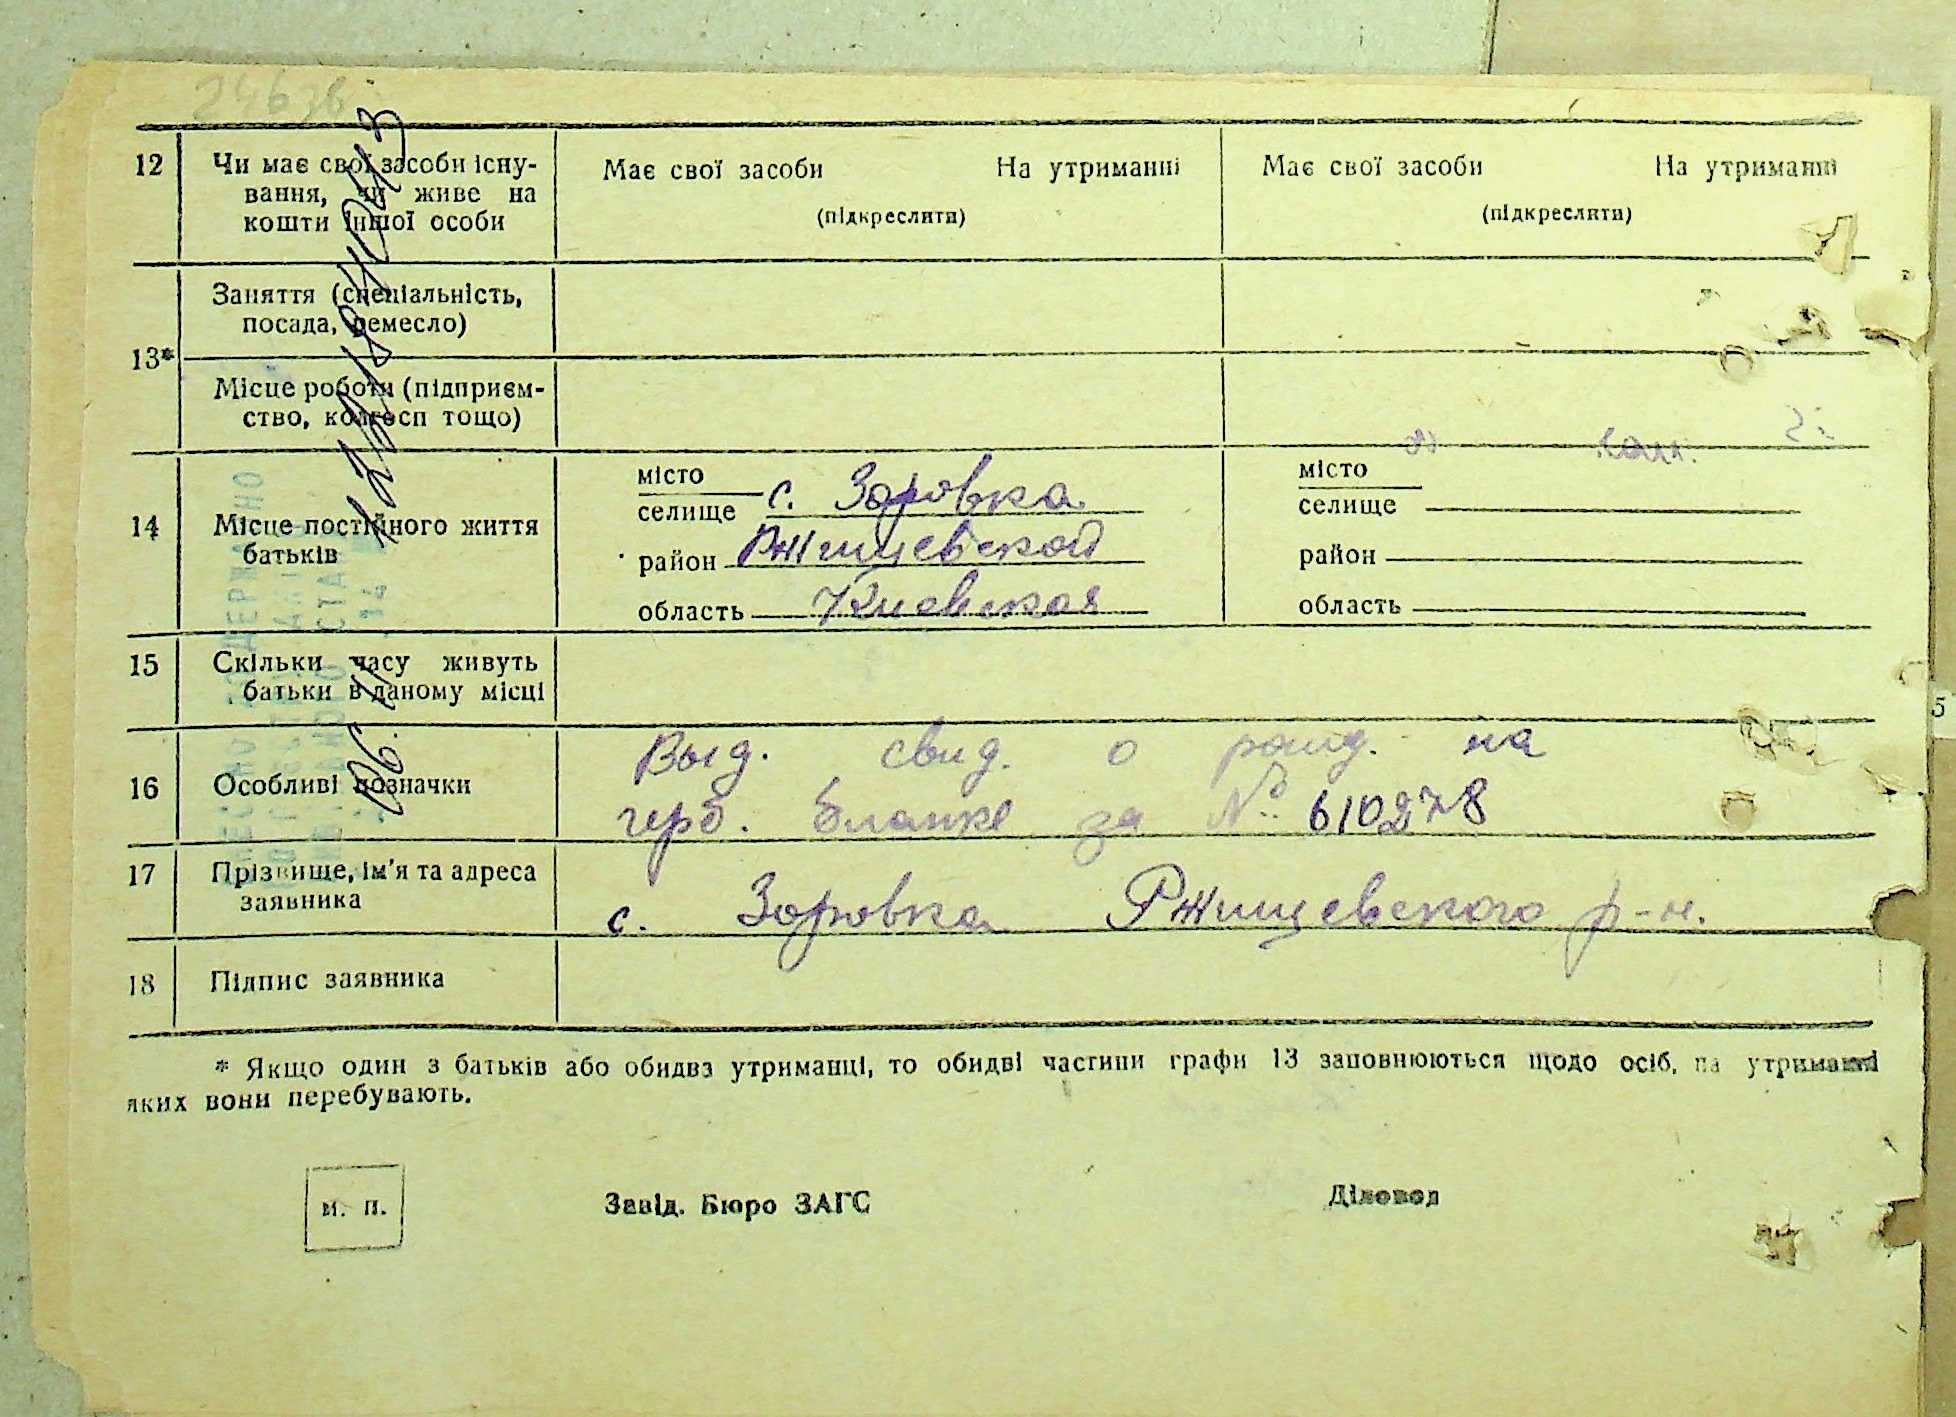 12 Чи має свої засоби існу-
вання, чи живе на
кошти іншої особи
Має свої засоби На утриманні
(підкреслити)
Має свої засоби На утриманні
(підкреслити)
13*
Заняття (спеціальність,
посада, ремесло)
Місце роботи (підприєм-
ство, колгосп тощо)
14 Місце постійного життя
батьків
місто
селище с. Зоровка
район Ржищевской
область Киевская
місто
селище
район
область
15 Скільки часу живуть
батьки в даному місці
16 Особливі позначки
Выд. свид. о рожд. на
герб. бланке за № 610278
17 Прізвище, ім'я та адреса
заявника
с. Зоровка Ржищевского р-н.
18 Підпис заявника
* Якщо один з батьків або обидва утриманці, то обидві частини графи 13 заповнюються щодо осіб, на утриманні
яких вони перебувають.
м. п.
Завід. Бюро ЗАГС
Діловод